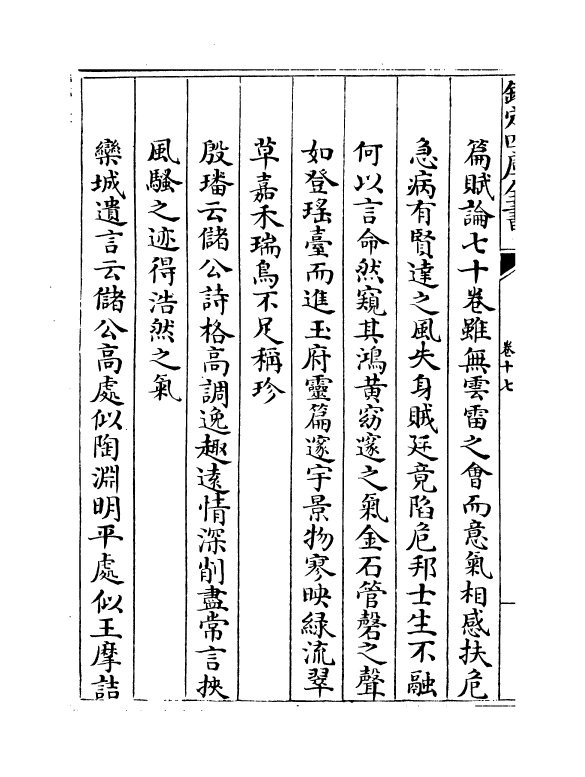 欽定四庫全書
卷十七
篇賦論七十卷雖無雲雷之會而意氣相感扶危
急病有賢達之風失身賊廷竟陷危邦士生不融
何以言命然窺其鴻黃窈邃之氣金石管磬之聲
如登瑤臺而進玉府靈篇邃宇景物寥映緑流翠
草嘉禾瑞鳥不足稱珍
殷璠云儲公詩格高調逸趣遠情深削盡常言挾
風騷之迹得浩然之氣
欒城遺言云儲公高處似陶淵明平處似王摩詰